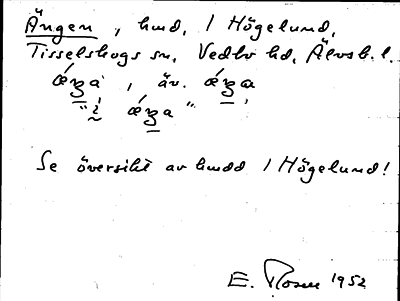 Ängen, hmd, 1 Högelund,
Tisselskogs sn, Vedbo hd, Älvsb. l.
ǽŋa, äv. ǽŋa,
"i ǽŋa"
Se översikt av hmdd 1 Högelund!
E. Rosen 1952